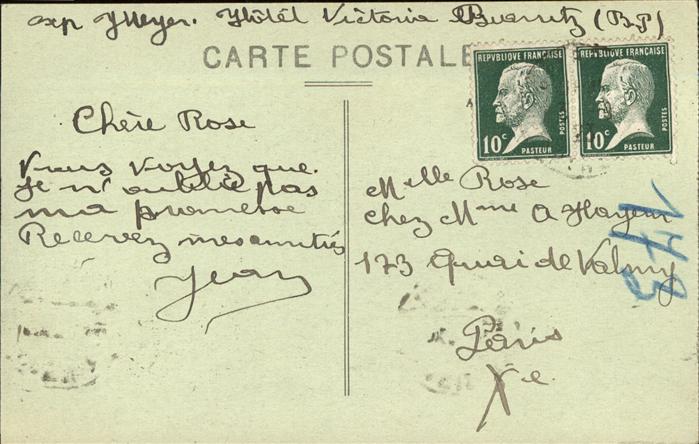 exp J Meyer. Hôtel Victoria Biarritz (B.P)
CARTE POSTALE
REPUBLIQUE FRANÇAISE
10c
POSTES
PASTEUR
REPUBLIQUE FRANÇAISE
10c
POSTES
PASTEUR
Chère Rose
Vous voyez que
je n'oublie pas
ma promesse
Recevez mes amitiés
Jean
Melle Rose
chez Mme A Hayem
173 Quai de Valmy
Paris
Xe
173